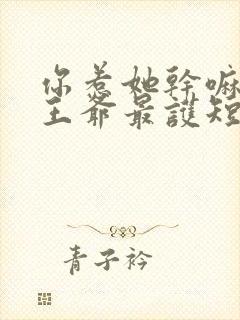 你惹她幹嘛
王爺最護短
青子衿